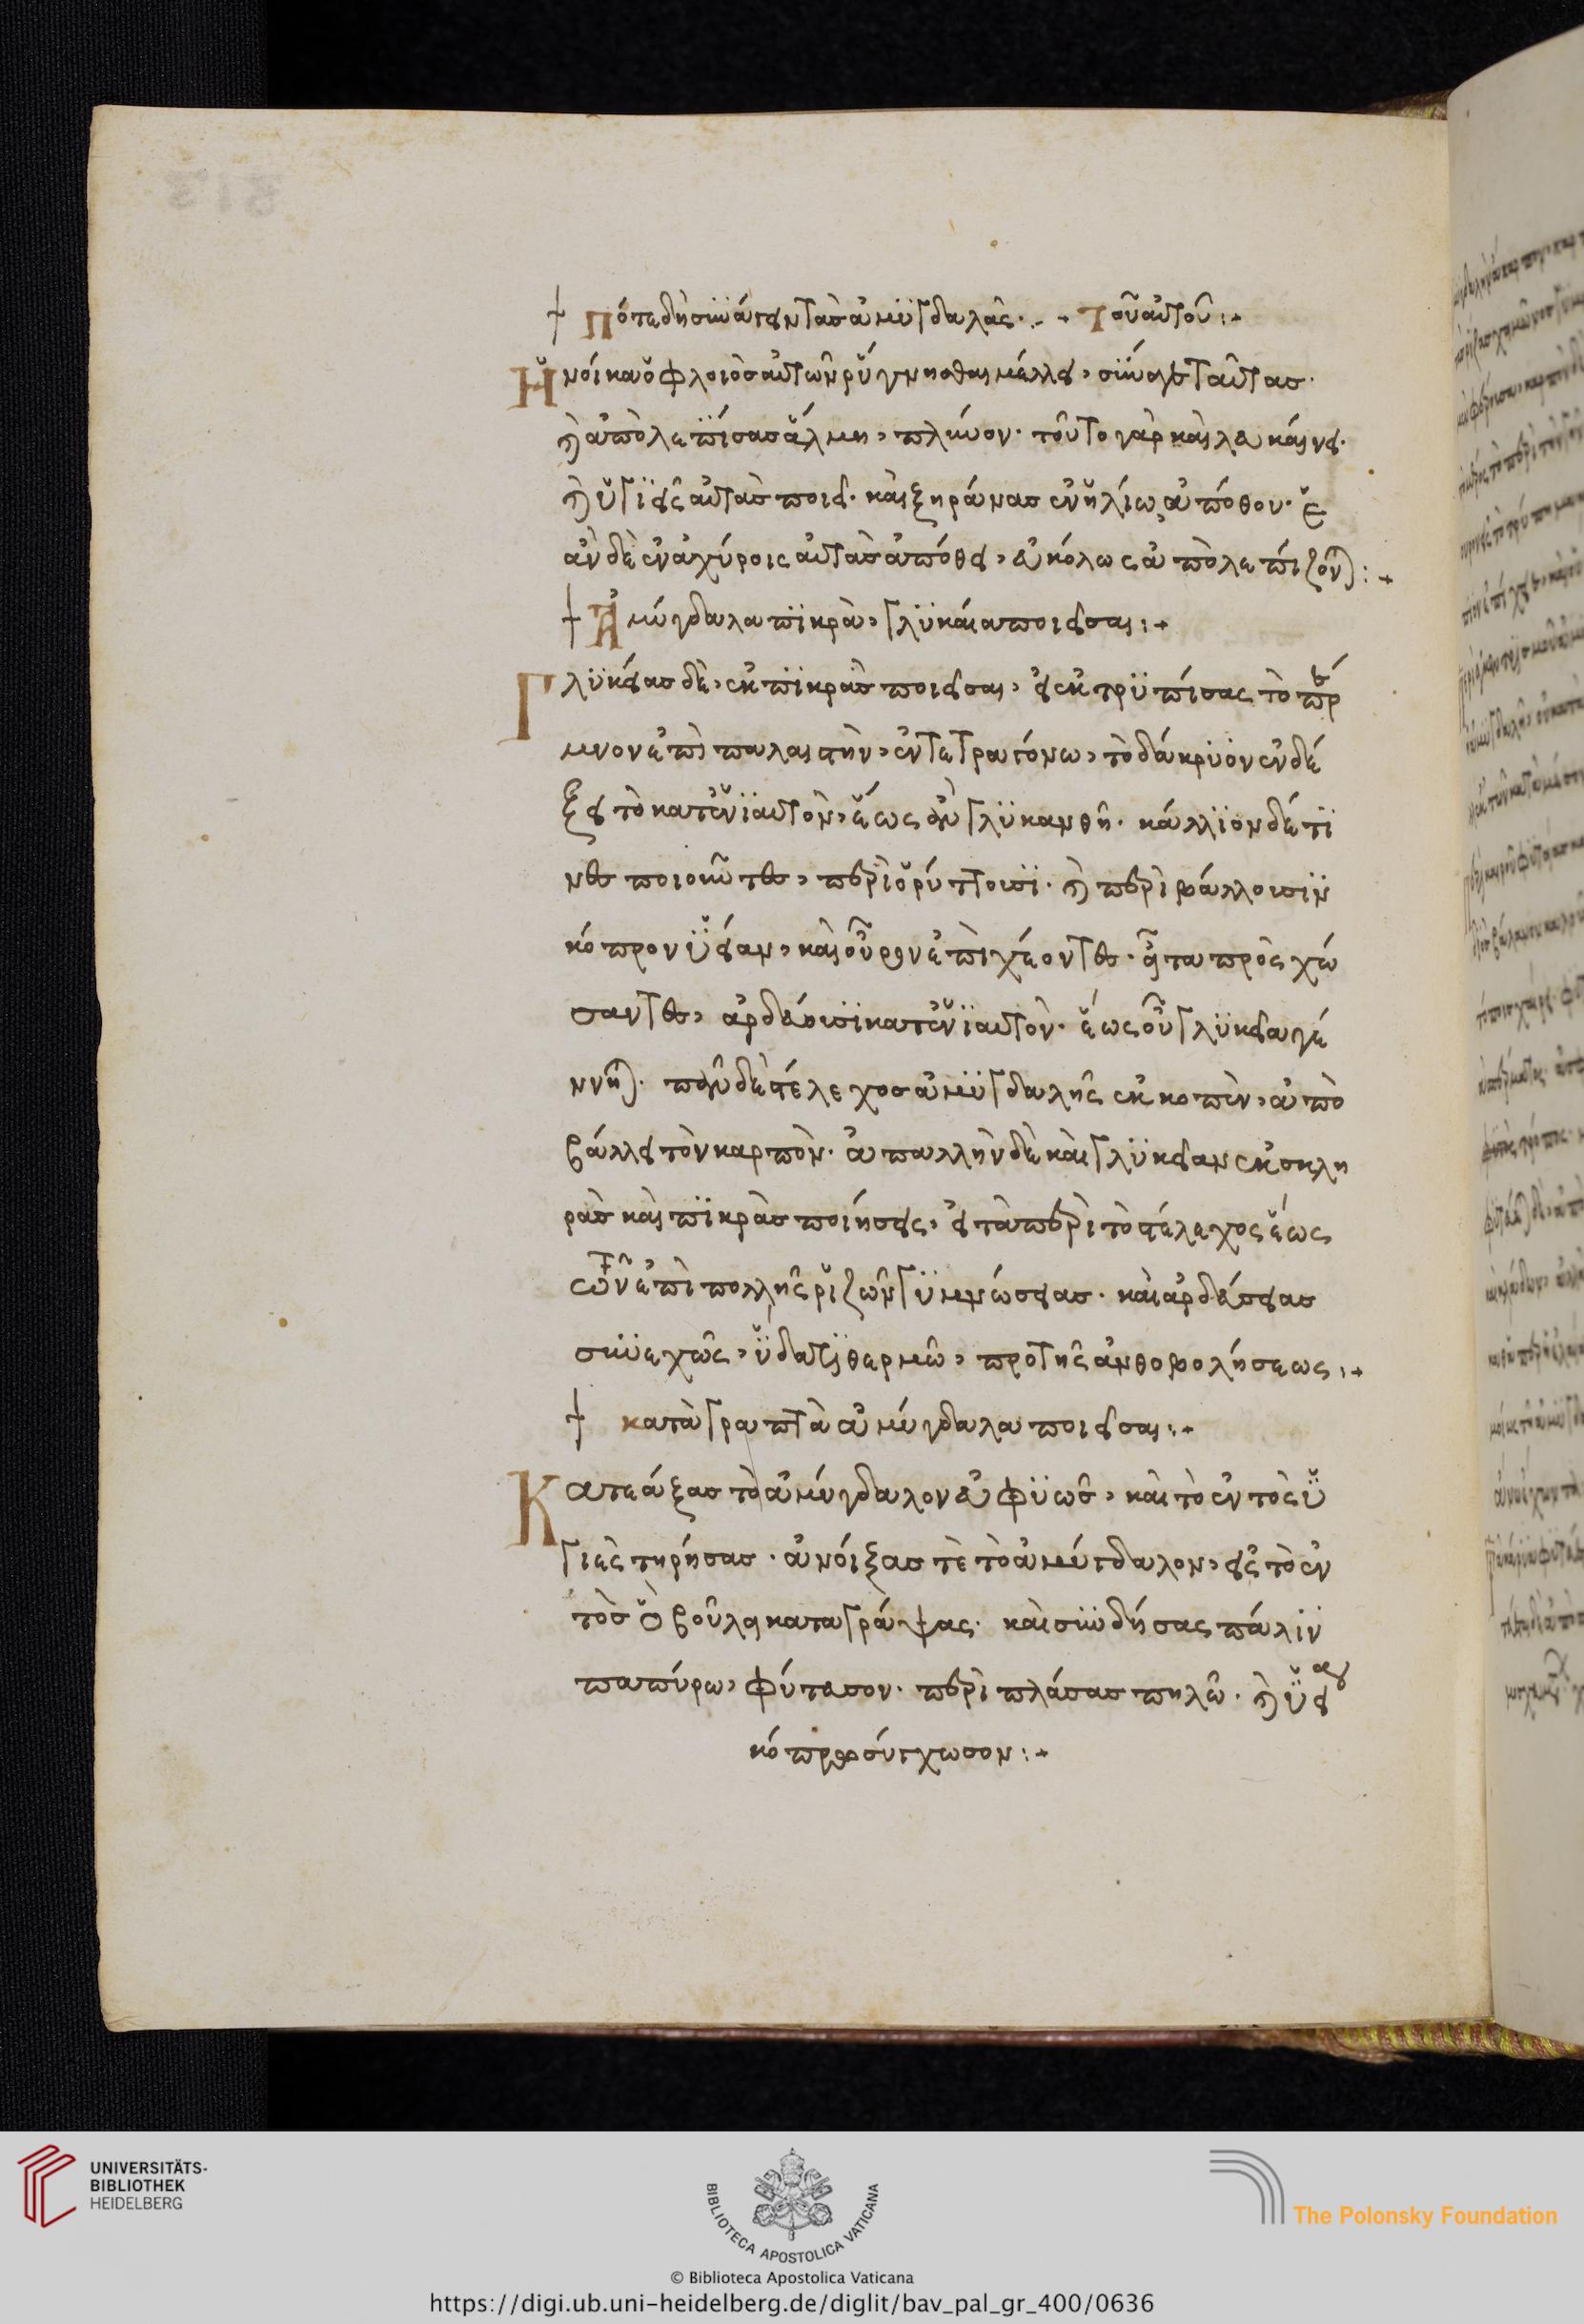 Πότε δὴ συνάγειν τὰσ ἀμυγδαλάς. Τοῦ αὐτοῦ:
Ἡνοίκα ὁ φλοιὸσ αὐτῶν ῥύγνησθαι μέλλει, σύναγε ταύτασ.
ἢ ἀπολεπίσασ ἅλμη, πλῦνον. τοῦτο γὰρ καὶ λευκαίνει.
ἢ ὑγιεῖς αὐτὰσ ποιεῖ. καὶ ξηράνασ ἐν ἡλίω, ἀπόθου. ἐ
ὰν δὲ ἐν ἀχύροις αὐτὰσ ἀπόθει, εὐκόλως ἀπολεπίζονται:
Ἀμύγδαλα πικρὰ, γλυκαία ποιεῖσαι:
Γλυκείασ δὲ, ἐκ πικρὰσ ποιεῖσαι, εἰ ἐκτρυπίσας τὸ πρέ
μνον ἐπὶ παλαιστὴν, ἐν τετραγόνω, τὸ δάκρυὸν ἐνδέ
ξει τὸ κατ' ἐνϊαυτὸν, ἕως οὗ γλυκανθῆ. κάλλϊον δέ τι
νεσ ποιοῦντεσ, περιὀρύττουσϊ. ἢ περιβάλλουσϊν
κόπρον ὑείαν, καὶ οὖρον ἐπὶχέοντεσ. εἶτα προσχώ
σαντεσ, ἀρδεύουσϊ κατ' ἐνϊαυτὸν. ἕως οὗ γλυκεῖα γέ
ννηται. πολὺ δὲ στέλεχοσ ἀμυγδαλῆς ἐκκοπὲν, ἀπο
βάλλει τὸν καρπὸν. ἁπαλλὴν δὲ καὶ γλυκεῖαν ἐκ σκλη
ρὰσ καὶ πικρὰσ ποιήσεις, εἰ τὰ περὶ τὸ στέλεχος ἕως
τῶν ἐπὶπολλῆς ῥιζῶν γυμνώσειασ. καὶ ἀρδεύσειασ
συνεχῶς, ὕδατι θερμῶ, πρὸ τῆς ἀνθοβολήσεως:
κατάγραπτα ἀμύγδαλα ποιεῖσαι:
Κατεάξασ τὸ ἀμύγδαλον εὐφυῶσ, καὶ τὸ ἐντὸς ὑ
γιὲς τηρήσασ. ἀνοίξασ τὲ τὸ ἀμύγδαλον, εἰς τὸ ἐν
τὸσ ὃ βούλη καταγράψας. καὶ συνδήσας πάλιν
παπύρω, φύτευσον. περιπλάσασ πηλῶ. ἢ ὑεία
κόπρω σύγχωσον:
UNIVERSITÄTS-
BIBLIOTHEK
HEIDELBERG
BIBLIOTECA APOSTOLICA VATICANA
The Polonsky Foundation
© Biblioteca Apostolica Vaticana
https://digi.ub.uni-heidelberg.de/diglit/bav_pal_gr_400/0636